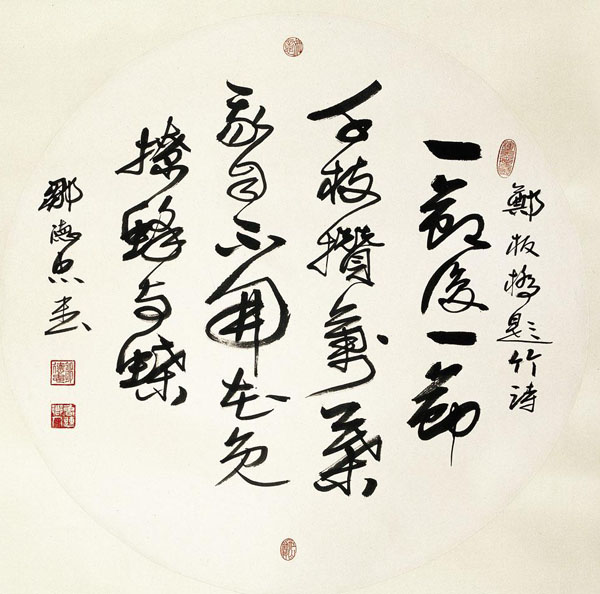 鄭板橋題竹詩
一節復一節
千枝攢萬葉
我自不開花免
撩蜂与蝶
鄒德忠書